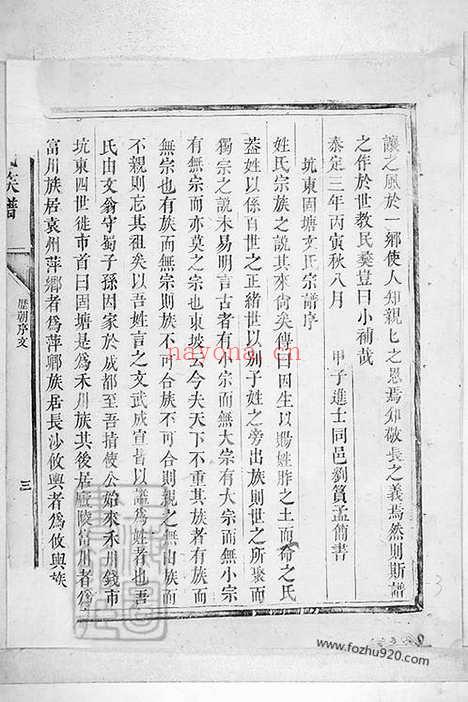 讓之風於一鄉使人知親匕之恩焉知敬長之義焉然則斯譜
之作於世教民彝豈曰小補哉
泰定三年丙寅秋八月
甲子進士同邑劉質孟簡書
坑東固塘文氏宗譜序
姓氏宗族之說其來尚矣傳曰因生以賜姓胙之土而命之氏
蓋姓以係百世之正緒世以別子姓之旁出族則世之所聚而
獨宗之說未易明言古者有小宗而無大宗有大宗而無小宗
有無宗而亦莫之宗也東坡云今夫天下不重其族者有族而
無宗也有族而無宗則族不可合族不可合則親之無由族而
不親則忘其祖矣以吾姓言之文武成宣皆以諡為姓者也吾
氏由文翁守蜀子孫因家於成都至吾時使公始來禾川錢市
坑東四世徙市首曰固塘是為禾川族其後居廬陵富川者為
富川族居袁州萍鄉者為萍鄉族居長沙攸輿者為攸輿族
族譜
歷朝序文
三
nayona.cn
3
www.fozhu920.com